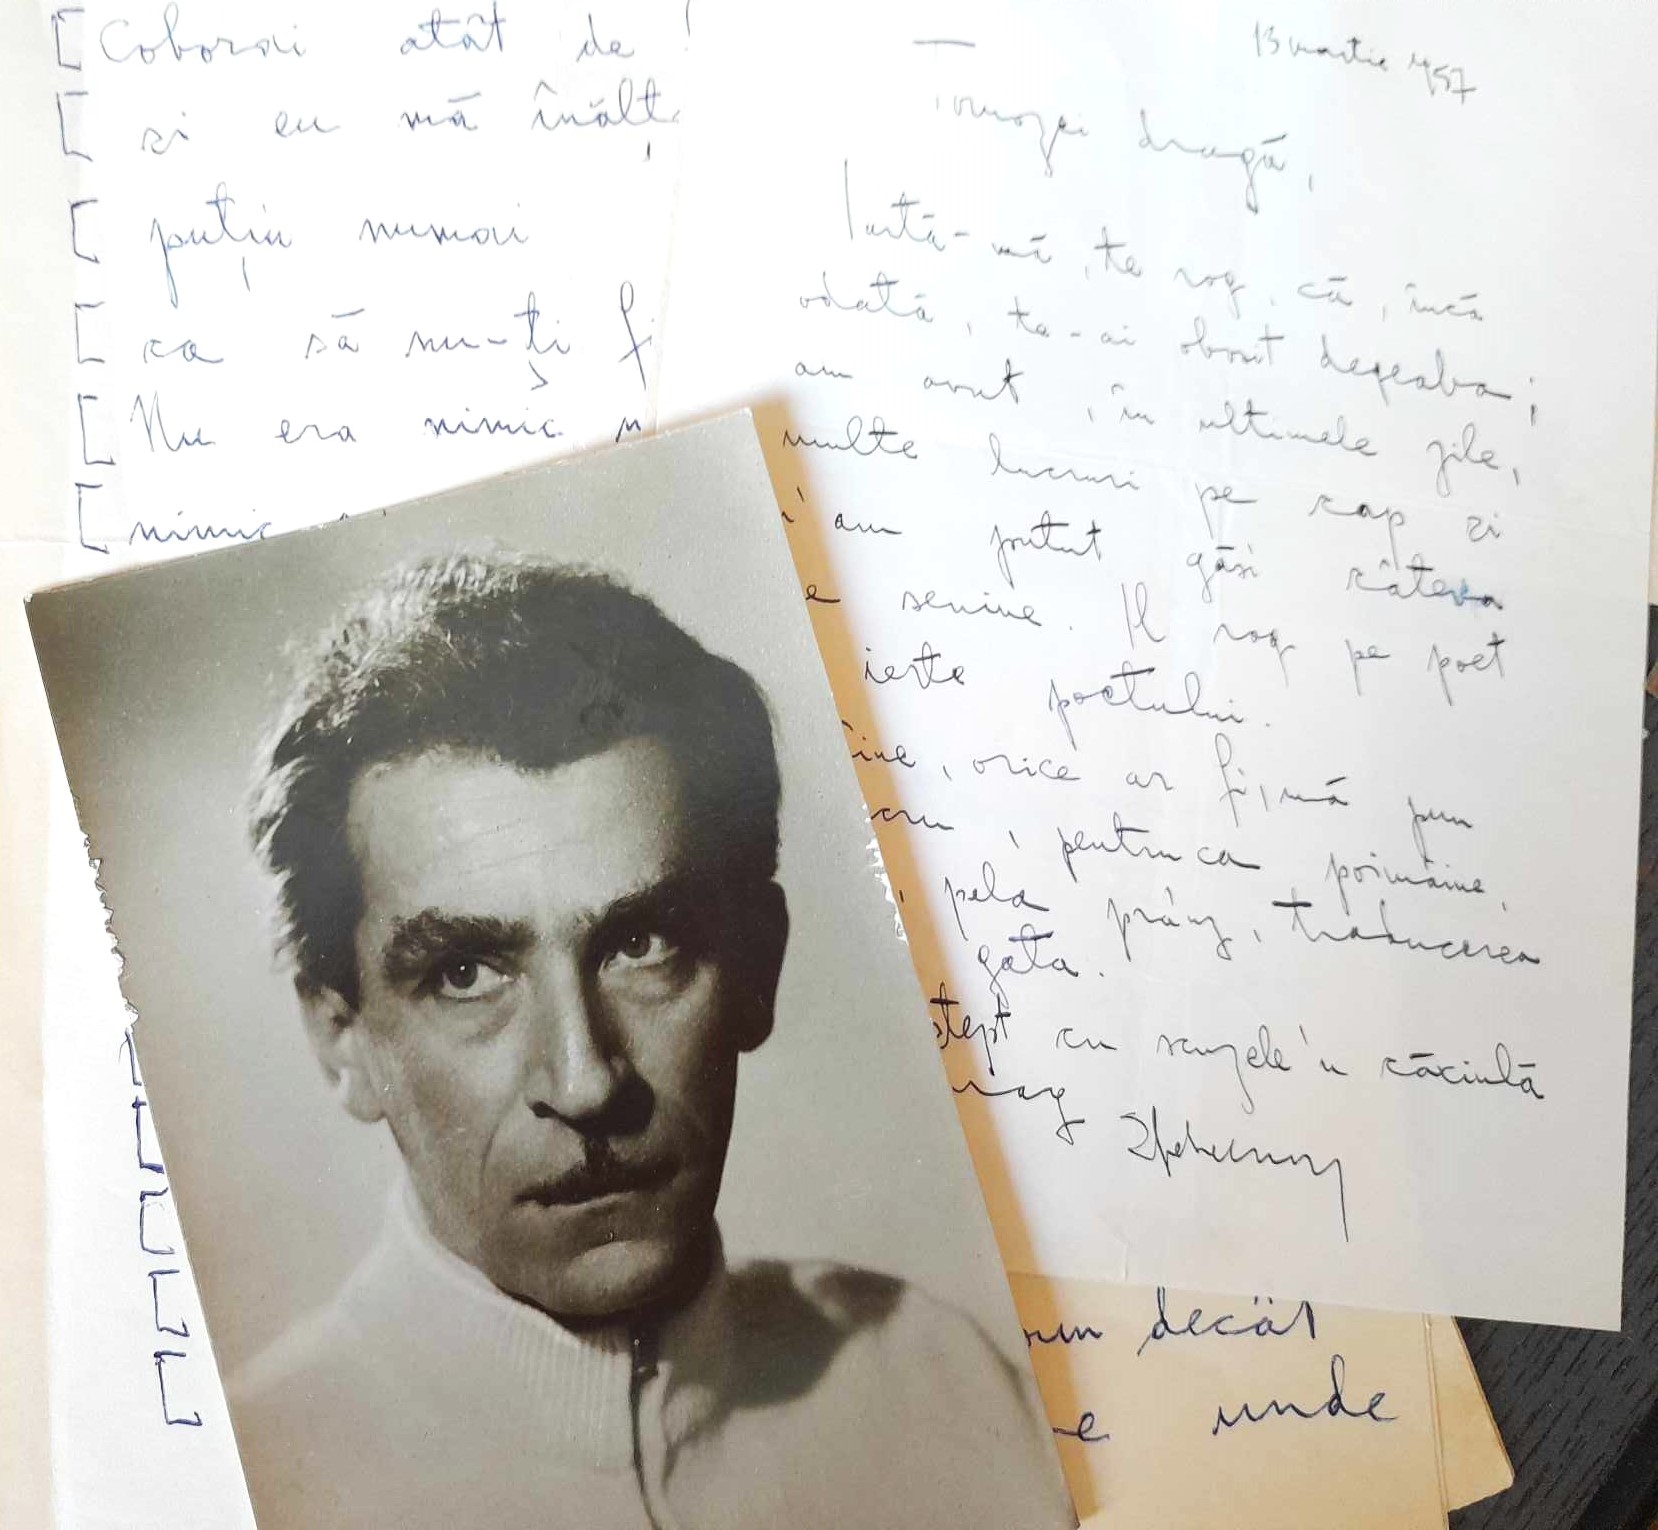 Coborai atât de
și eu mă înălț
puțin numai
ca să nu-ți fi
Nu era nimic
nimic
13 martie 1957
Tomozei dragă,
Iartă-mă, te rog, că, încă
odată, te-ai obosit degeaba;
am avut, în ultimele zile,
multe lucruri pe cap și
am putut găsi câteva
e senine. Îl rog pe poet
ierte poetului.
ine, orice ar fi, mă pun
cru, pentru ca poimâine,
pela prânz, traducerea
gata.
ștept cu scuzele'n căciulă
rag
decât
e unde